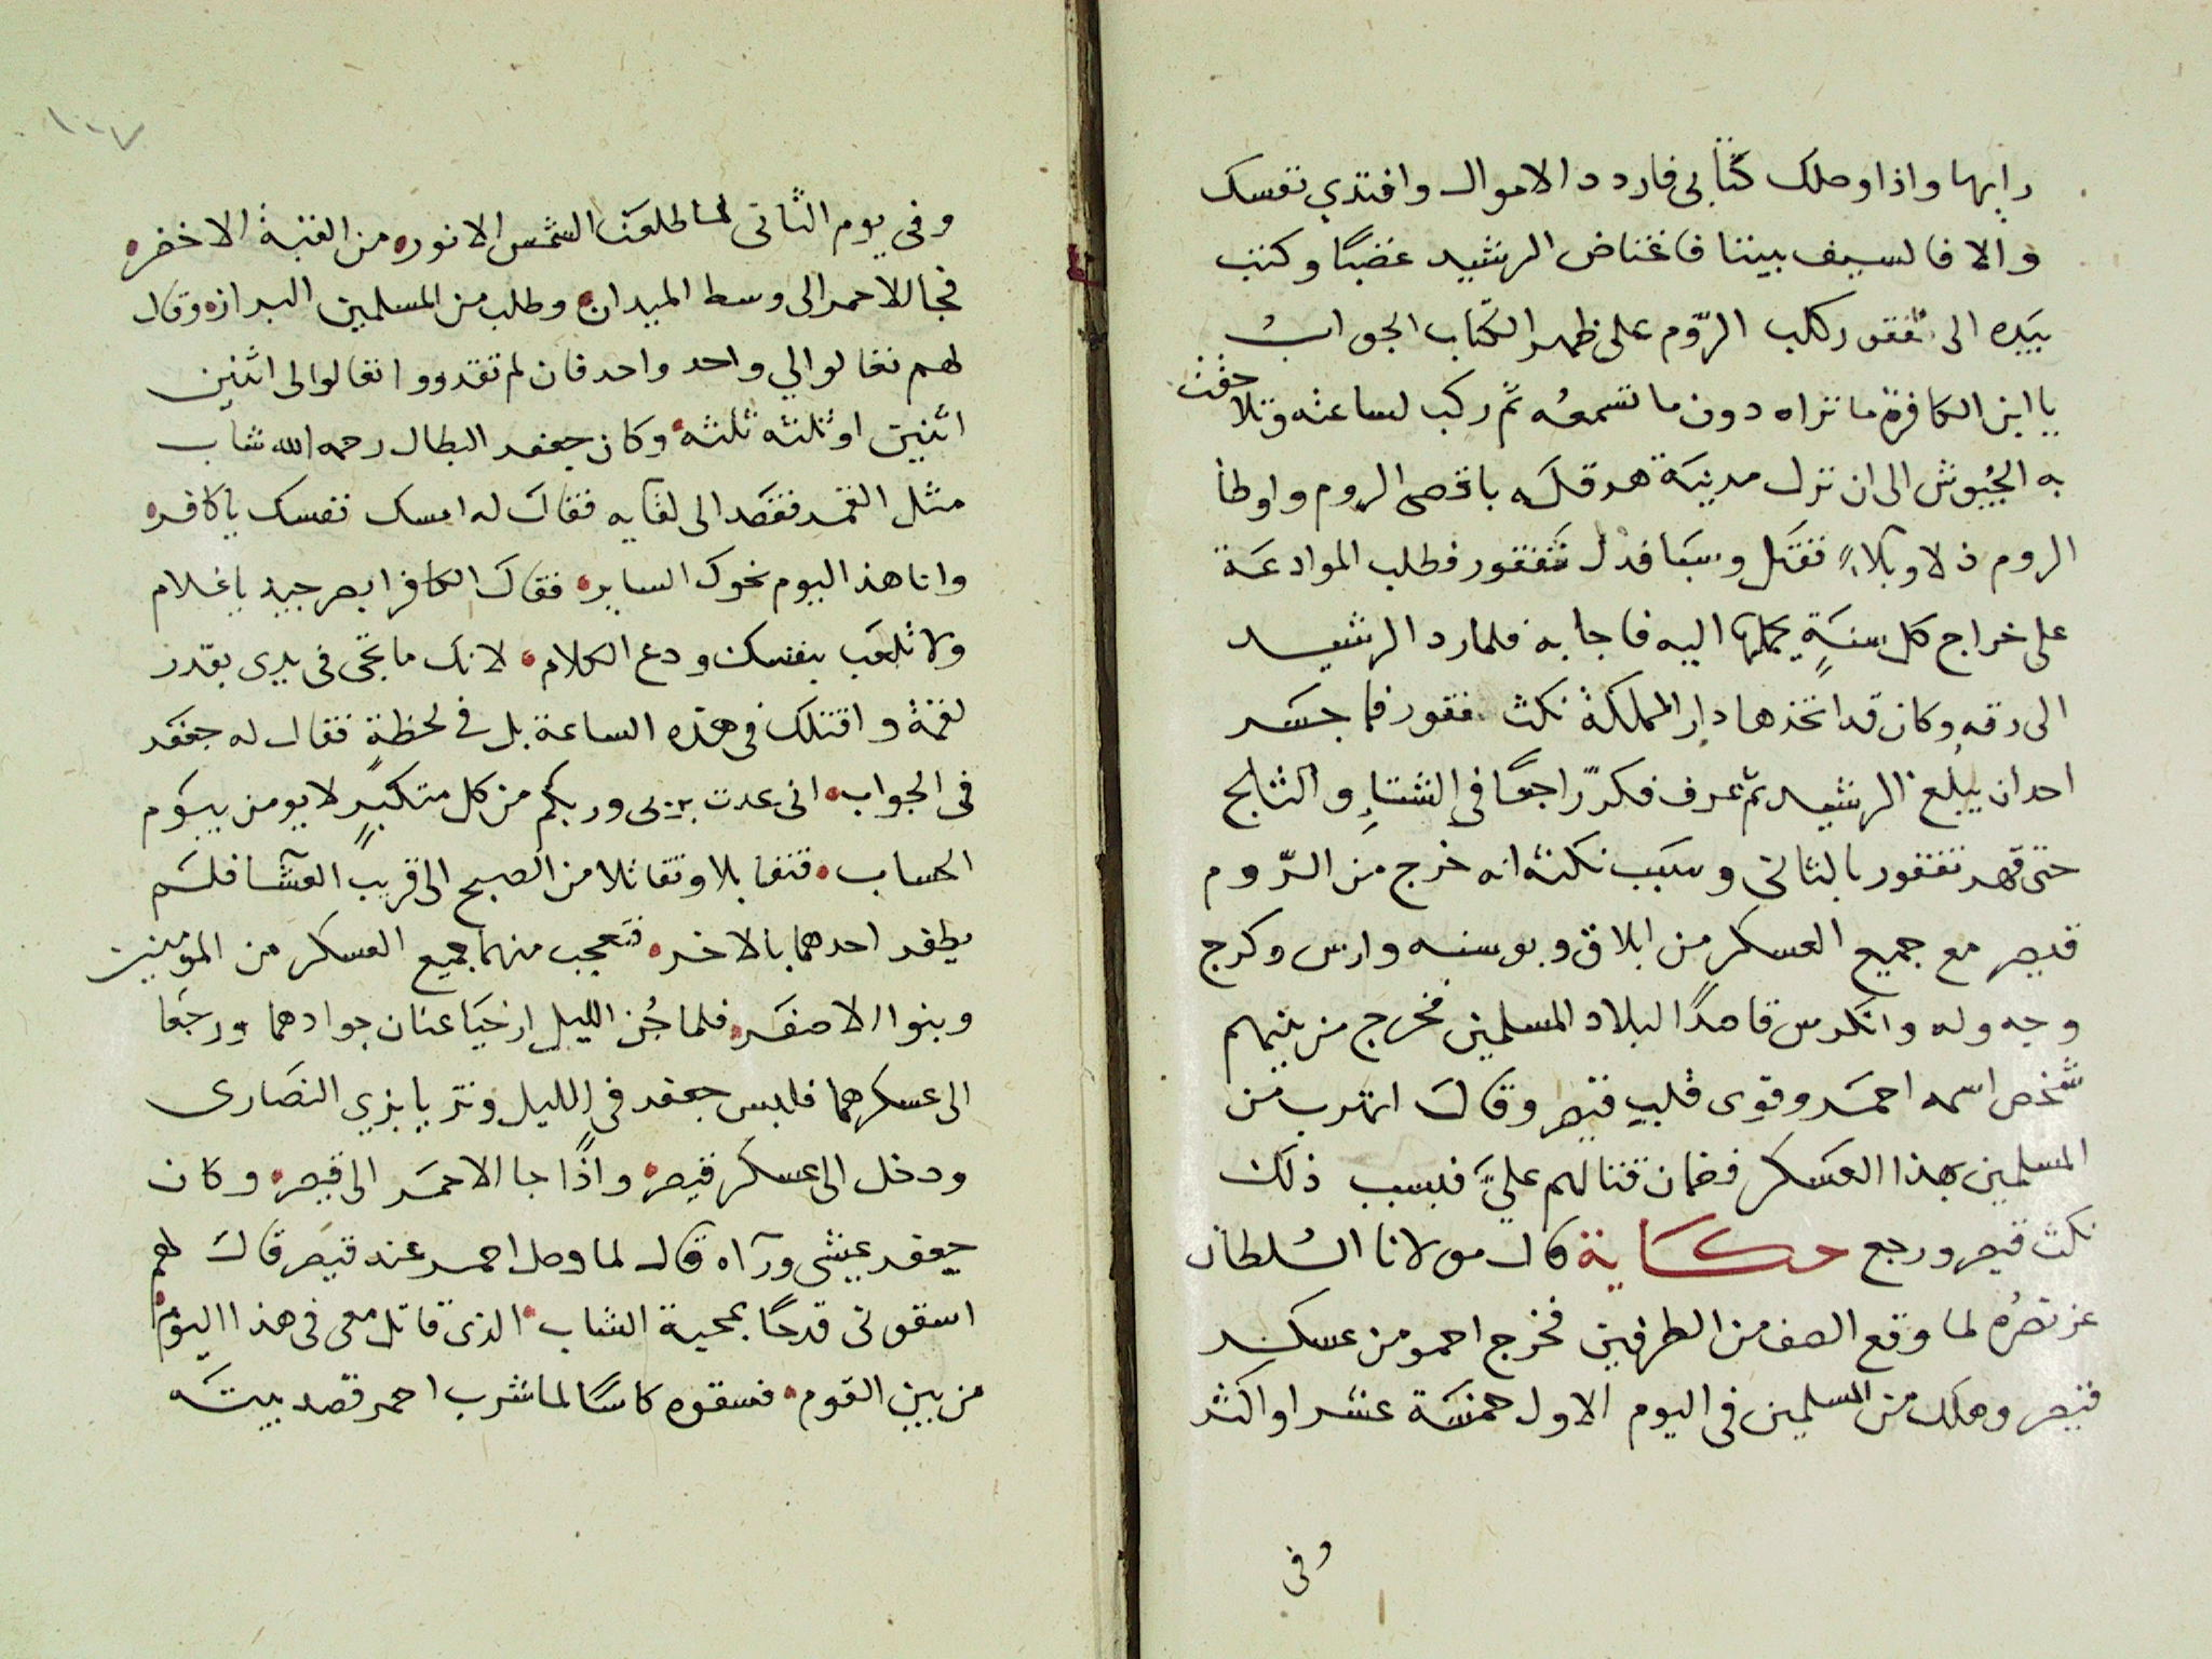 رايها واذا وصلك كتابى فاردد الاموال وافتدي نفسك
والا فالسيف بيننا فاغتاض الرشيد غضبًا وكتب
بيَده الى نقفور كلب الرّوم على ظهر الكتاب الجوابُ
يا ابن الكافرة ما تراه دون ما تسمعُه ثم ركب لساعته وتلاحقت
به الجُيوش الى ان نزل مدينَة هرقلَه باقصى الروم واوطا
الروم ذلا وبلاءً فقتَل وسبَا فذل نقفور فطلب الموادعَة
على خراج كل سنةٍ يحملها اليه فاجابه فلما رد الرشيد
الى رقه وكان قد اتخذها دار المملكة نكث نقفور فما جسَر
احد ان يبلغ الرشيد ثم عرف فكرّ راجعًا فى الشتاءِ والثلج
حتى قهر نقفور بالثانى وسبَب نكثه انه خرج من الرّوم
قيصر مع جميع العسكر من ابلاق وبوسنه وارس وكرج
وجه وله وانكرس قاصدًا لبلاد المسلمين فخرج من بينهم
شخص اسمه احمَر وقوى قلب قيصر وقالَ اتهرب من
المسلمين بهذا العسَكر فضمان قتالهم عليَّ فبسبب ذلك
نكث قيصر ورجع حكَاية قال مولانا السُلطان
عز نصرُه لما وقع الصف من الطرفين فخرج احمر من عسكر
قيصر وهلك من المسلمين فى اليوم الاول خمسَة عشر او اكثر
وفى
١٠٧
وفى يوم الثانى لما طلعَت الشمس الانوره من القبة الاخضره
فجا الاحمر الى وسط الميدان وطلب من المسلمين البرازه وقال
لهم تعالوا لي واحد واحد فان لم تقدروا تعالوا لى اثنين
اثنين او ثلثه ثلثه وكان جعفر البطال رحمه الله شاب
مثل القمَر فقصَد الى لقايه فقالَ له امسك نفسك يا كافره
وانا هذا اليوم نحوك السايره فقالَ الكافر ابصر جيد يا غلام
ولا تلعَب بنفسك ودع الكلام لانك ما تجى فى يدى بقدر
لقمة واقتلك فى هذه الساعة بل فى لحظةٍ فقال له جعفَر
فى الجواب انى عدت بربى وربكم من كل متكبرٍ لا يومن بيوَم
الحساب فتقابلا وتقاتلا من الصبح الى قريب العَشا فلسَم
يظفر احدهما بالاخره فتعجب منهما جميع العسكر من المومنين
وبنوا الاصفَر فلما جُن الليل ارخيَا عنان جوادهما ورجعَا
الى عسكرهما فلبس جعفر فى الليل وتزيا بزي النصَارى
ودخل الى عسكر قيصره واذًا جا الاحمَر الى قيصره وكان
جعفر عيشى ورآه قال لما وصل احمر عند قيصَر قالَ لهم
اسقونى قدحًا بمحبة الشاب الذى قاتل معى فى هذا اليوم
من بين القوم فسقوه كاسًا لما شرب احمر قصد بيتَه